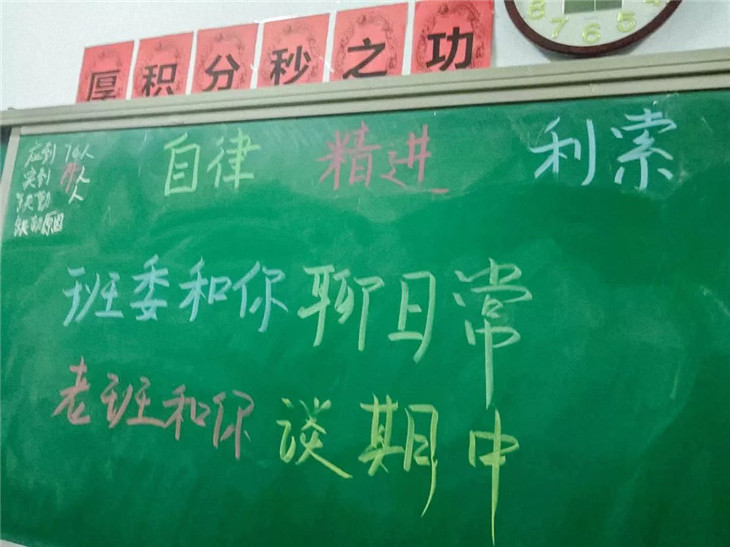 厚积分秒之功
自律 精进 利索
应到 76人
实到 人
缺勤 人
缺勤原因
班委和你聊日常
老班和你谈期中
8 7 6 5